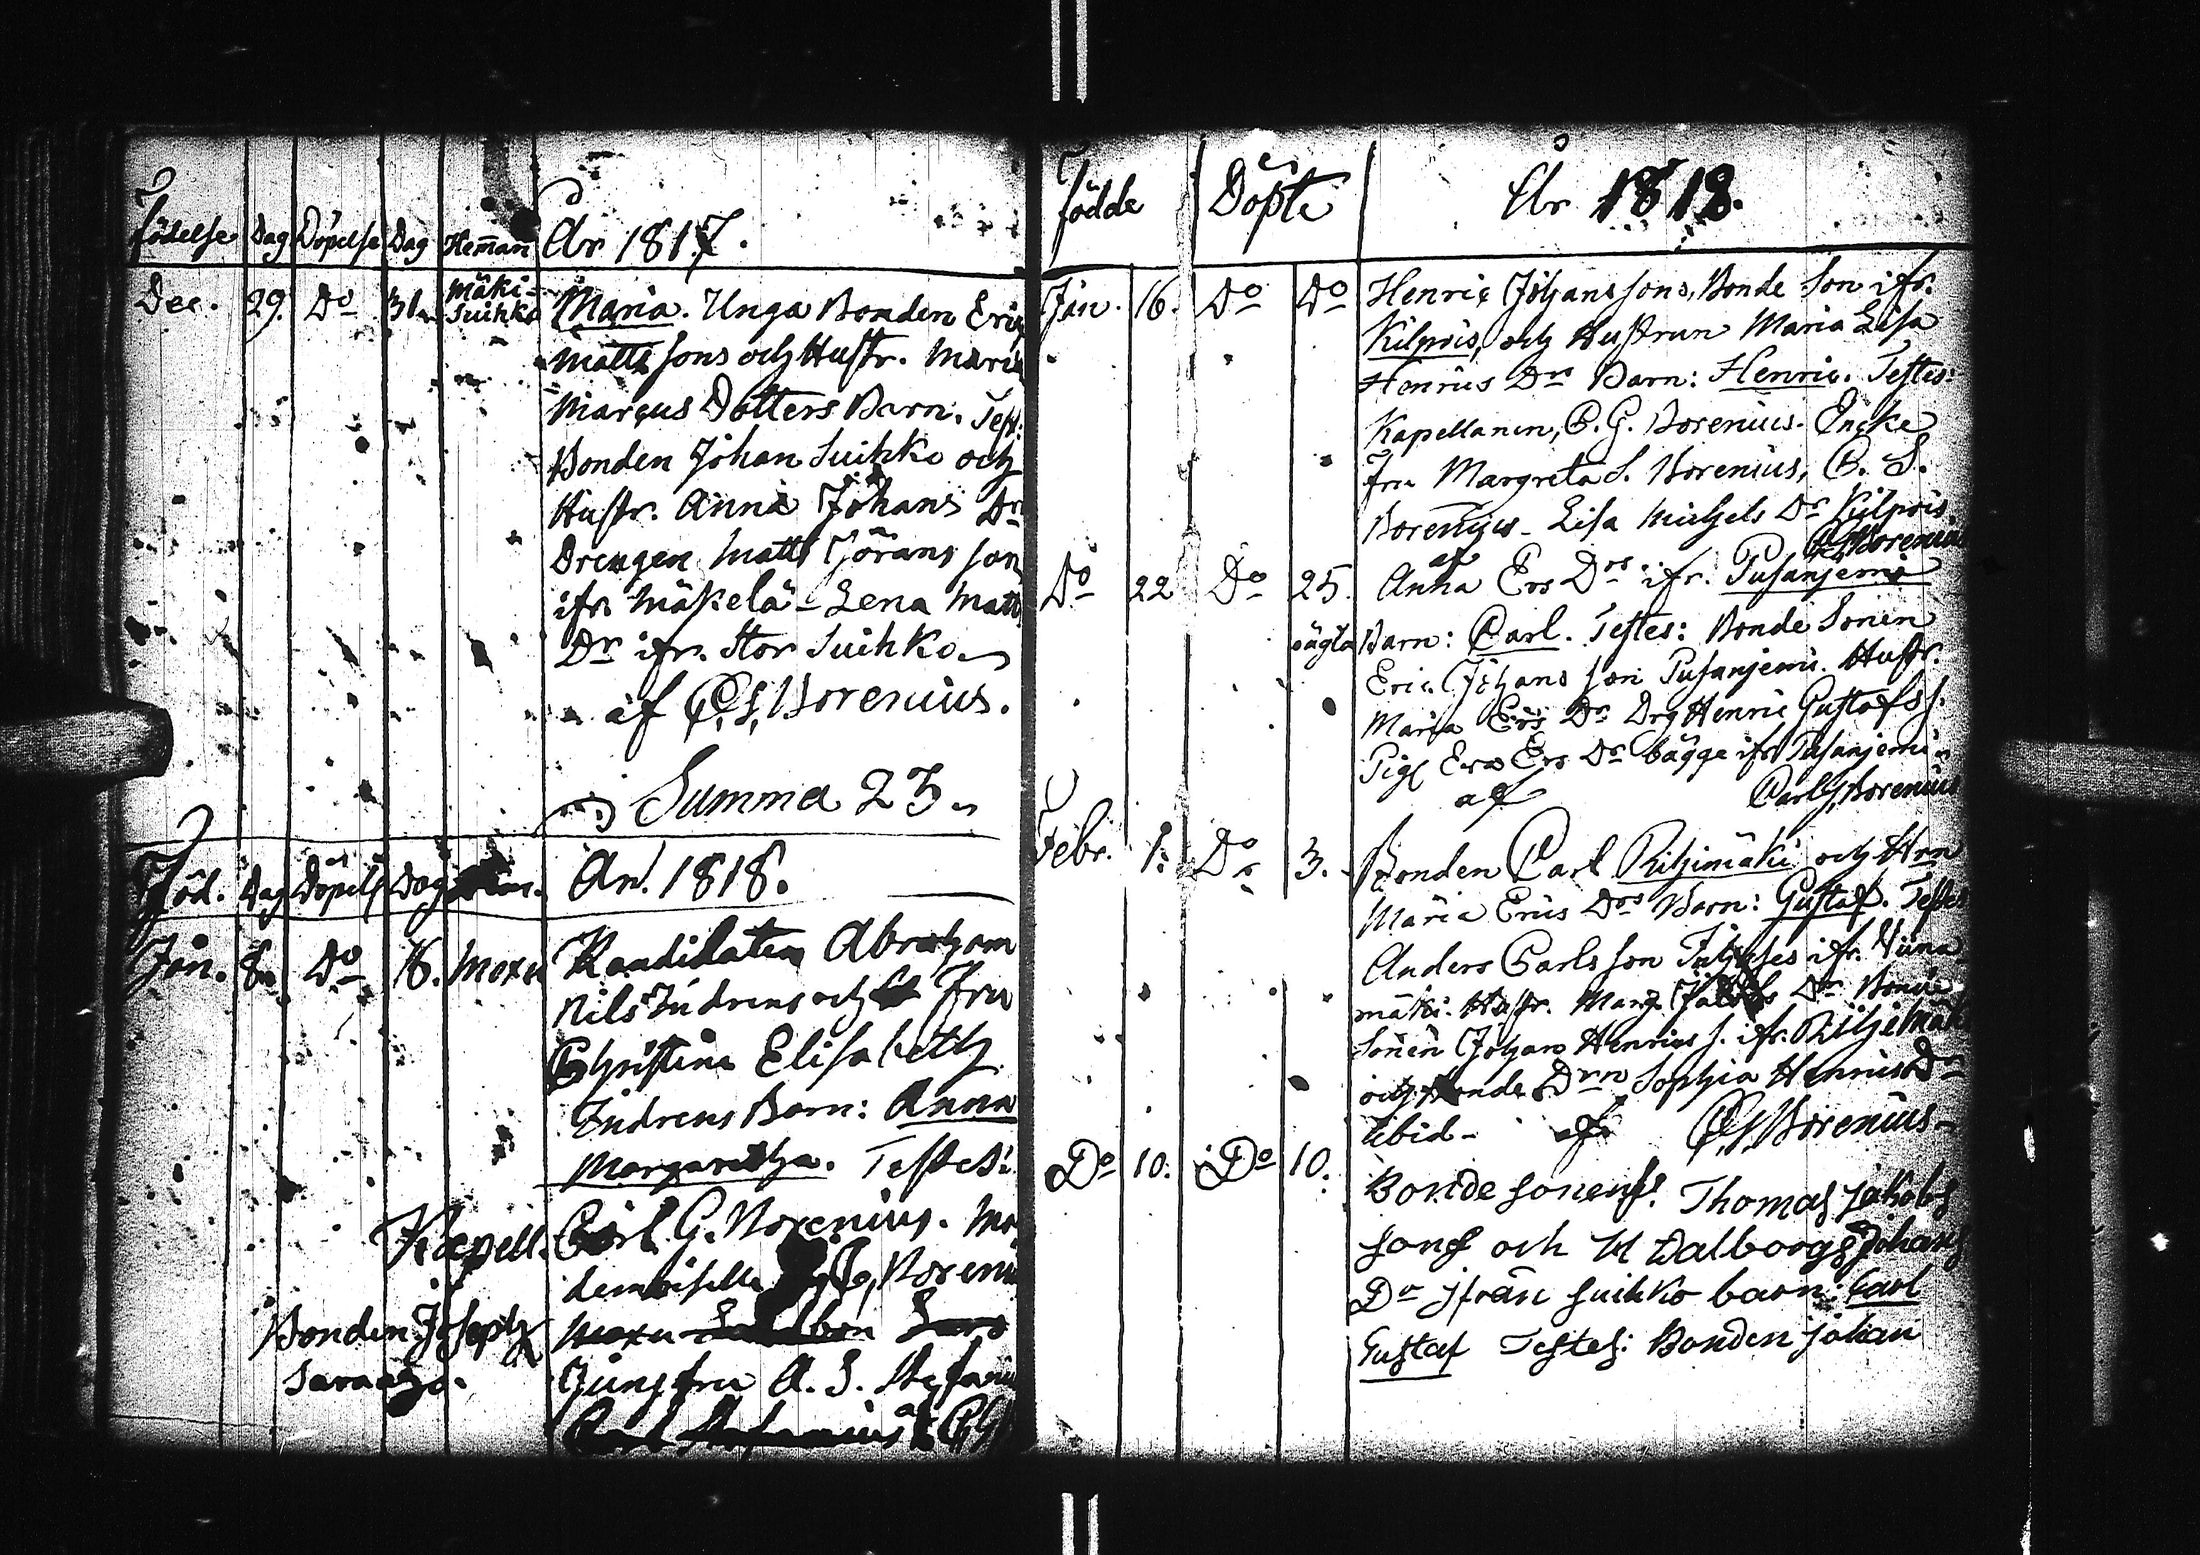 Födelse Dag Döpelse Dag Hem̄an År 1817.
Dec. 29. Do 31. Mäki-
Suihko
Maria. Unga Bonden Eric
Matts sons och Hustr. Maria
Marcus Dotters Barn. Test:
Bonden Johan Suihko och
Hustr. Anna Johans Dr
Drengen Matts Görans son
ifr. Mäkelä - Lena Matts
Dr ifr. Stor Suihko.
af C. G. Borenius.
Summa 23.
Föd. Dag Döpels Dag An. 1818.
Jan. 8. Do 16. Moxu Kandidaten Abraham
Nils Indrens och Fru
Christina Elisabeth
Indrens Barn: Anna
Margaretha. Testes:
Kapell. Carl G. Borenius. Ma-
demoiselle Borenius
Bonden Joseph Moxu
Saraaho. Jungfru A. S. Stefanius
Carl Stefanius
Födde Döpte År 1818.
Jan. 16. Do Do Henric Johans sons, Bonde Son ifr.
Kilpois, och Hustrun Maria Lisa
Henrics Drs Barn: Henric. Testes:
Kapellanen, C. G. Borenius. Encke
Fru Margreta S. Borenius, C. S.
Borenius - Lisa Michels Dr Kilpois
af C G Borenius
Do 22 Do 25. Anna Ers Drs ifr. Pusanjemi
oägta Barn: Carl. Testes: Bonde Sonen
Eric Johans son Pusanjemi. Hustr.
Maria Ers Dr Drg Henric Gustafs s.
Pig Eva Ers Dr bägge ifr. Pusanjemi
af Carl G Borenius
Febr. 1. Do 3. Bonden Carl Rihimäki och Hrn
Maria Erics Drs Barn: Gustaf. Testes
Anders Carls son ifr. Viina
mäki. Hustr. Marg. Jakobs Dr Bonde
Sonen Johan Henrics s. ifr. Rihimäki
och Bonde Drn Sophia Henrics Dr
ibid - af C G Borenius -
Do 10. Do 10. Bonde sonens Thomas Jakobs
sons och H Walborgs Johans
Dr ifrån Suihko barn: Carl
Gustaf Testes: Bonden Johan